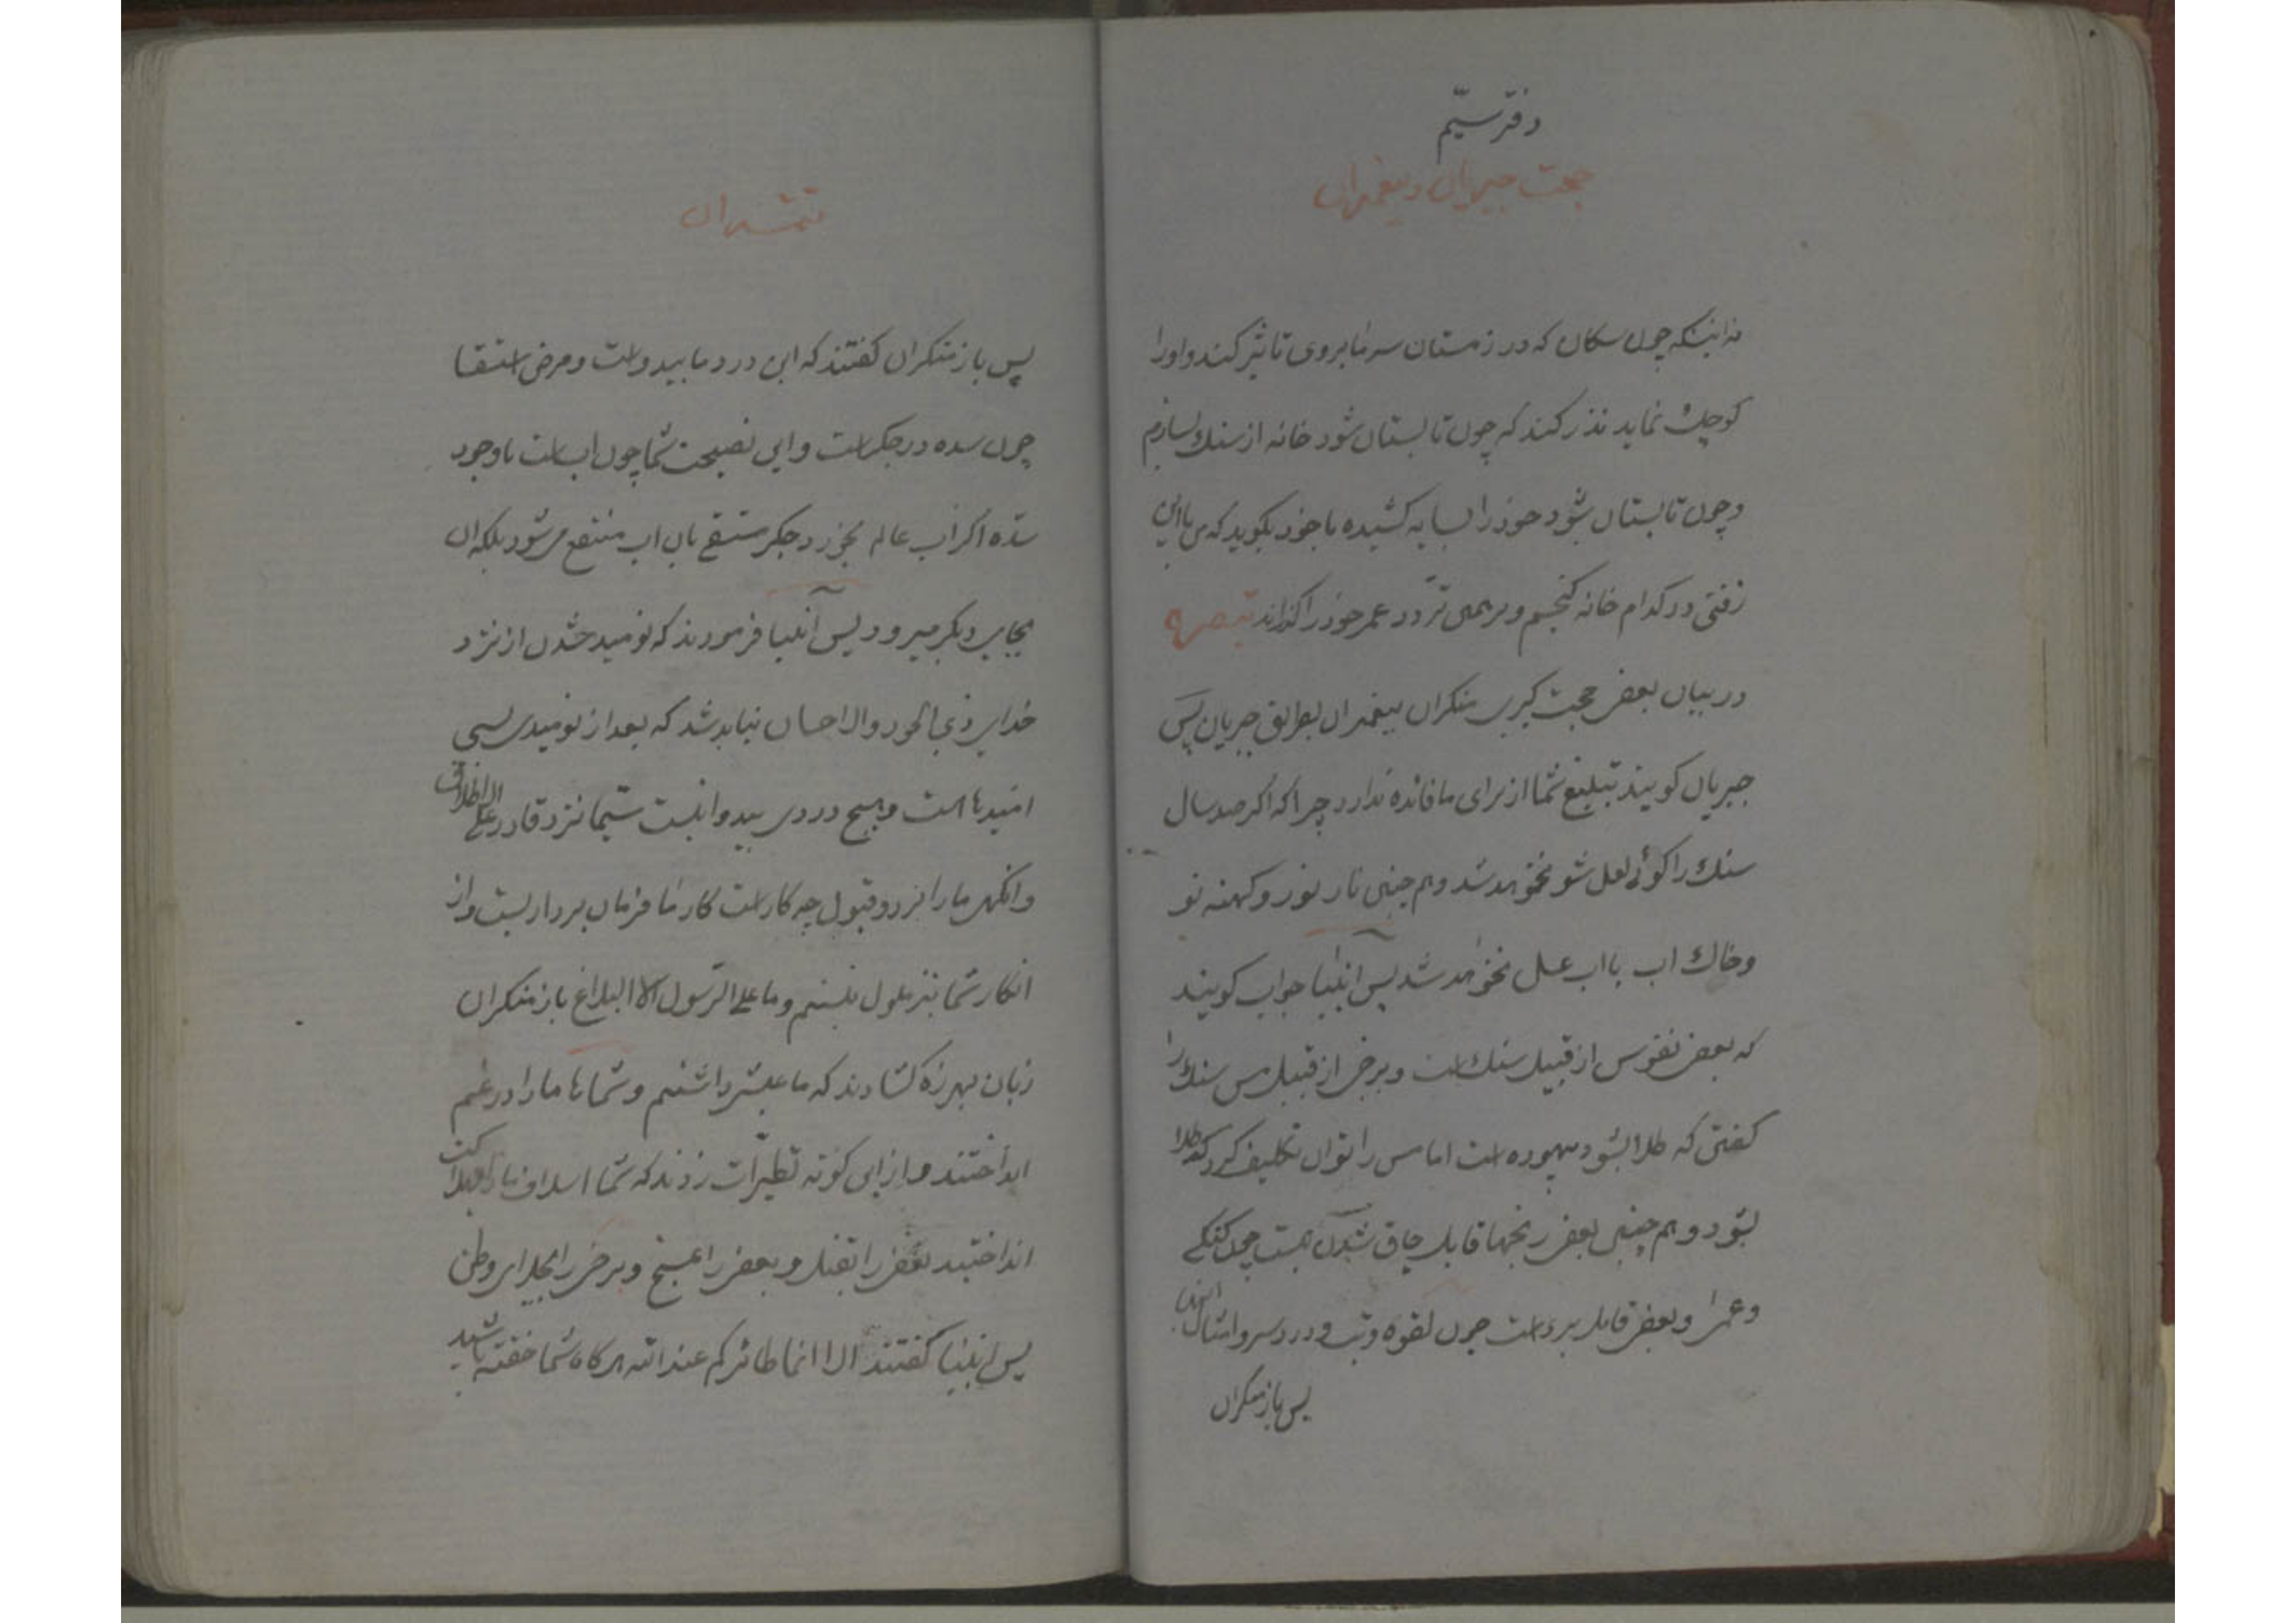 دفتر سیّم
حجت جبریان و پیغمبران
نه اینکه چون سکان که در زمستان سرما بروی تاثیر کند و اورا
کوچک نماید نذر کند که چون تابستان شود خانه از سنک بسازم
و چون تابستان شود خود را بسایه کشیده با خود بکوید که من باین
زفتی در کدام خانه کنجم و برهمین تردد عمر خود را کذراند تبصره
در بیان بعض حجت کیری منکران پیغمبران بطریق جبریان پس
جبریان کویند تبلیغ شما از برای ما فائده ندارد چرا که اکر صد سال
سنک را کوئی لعل شو نخواهد شد و هم چنین نار نور و کهنه نو
و خاک اب با اب عسل نخواهد شد پس انبیا جواب کویند
که بعض نفوس از قبیل سنک است و برخی از قبیل مس سنک را
کفتن که طلا بشود بیهوده است اما مس را توان تکلیف کرد که طلا
بشود و هم چنین بعض رنجها قابل چاق شدن نیست چون کنکی
و عمی و بعض قابل برء است چون لقوه و تب و درد سر و امثال اینها
پس باز منکران
پس باز منکران کفتند که این درد ما بیدواست و مرض استسقا
چون سده در جکر است و این نصیحت شما چون اب است با وجود
سدّه اکر اب عالم بخورد جکر مستسقی بان اب منتفع نمیشود بلکه ان
بجای دیکر میرود پس انبیا فرمودند که نومید شدن از نزد
خدای ذی الجود والاحسان نباید شد که بعد از نومیدی بسی
امیدها است و هیچ دردی بیدوا نیست سیّما نزد قادر علی الاطلاق
و انکهی ما را با رد و قبول چه کار است کار ما فرمان برداریست و از
انکار شما نیز ملول نیستیم و ما علی الرّسول الا البلاغ باز منکران
زبان بهرزه کشادند که ما عیش داشتیم و شماها ما را در غم
انداختند و از این کونه تطیّرات زدند که شما اسلاف ما را بهلاکت
انداختید بعض را بقتل و بعض را بمسخ و برخی را بجلای وطن
پس انبیا کفتند الا انما طائرکم عند الله هرکاه شما خفته باشید